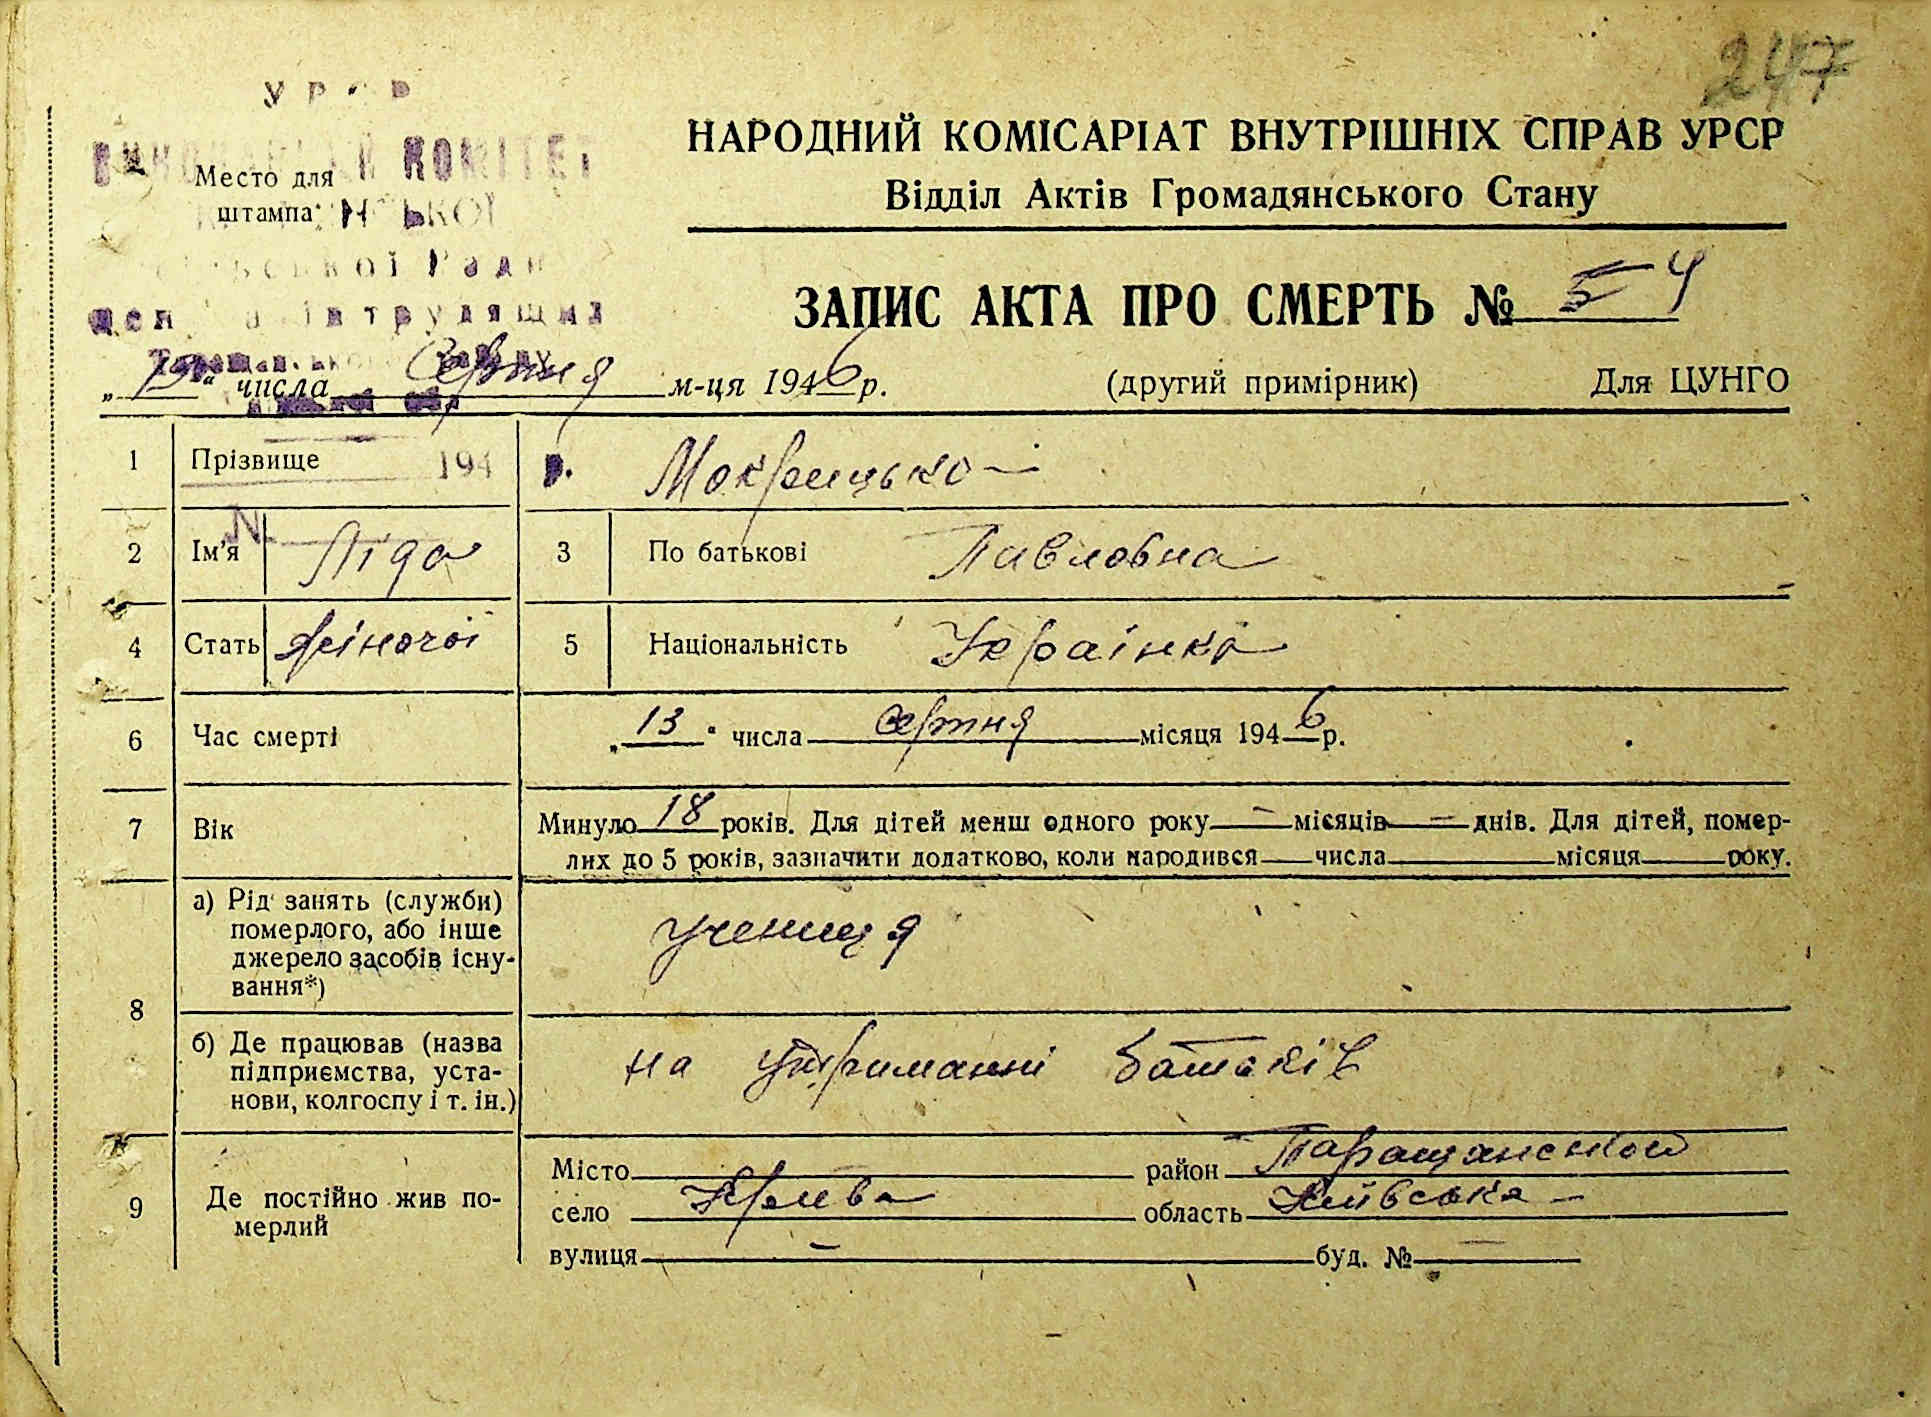 247
УРСР
ВИКОНАВЧИЙ КОМІТЕТ
Место для
штампа
ської Ради
деп трудящих
НАРОДНИЙ КОМІСАРІАТ ВНУТРІШНІХ СПРАВ УРСР
Відділ Актів Громадянського Стану
ЗАПИС АКТА ПРО СМЕРТЬ № 54
„15“ числа Серпня м-ця 1946 р. (другий примірник) Для ЦУНГО
1 Прізвище 194 р. Мокрицько
2 Ім'я Ліда 3 По батькові Павловна
4 Стать жіночої 5 Національність Українка
6 Час смерті „13“ числа серпня місяця 1946 р.
7 Вік Минуло 18 років. Для дітей менш одного року — місяців — днів. Для дітей, помер-
лих до 5 років, зазначити додатково, коли народився числа місяця року.
8 а) Рід занять (служби)
померлого, або інше
джерело засобів існу-
вання*)
учениця
б) Де працював (назва
підприємства, уста-
нови, колгоспу і т. ін.)
на утриманні батьків
9 Де постійно жив по-
мерлий
Місто район Таращанський
село Крива область Київська
вулиця — буд. № —